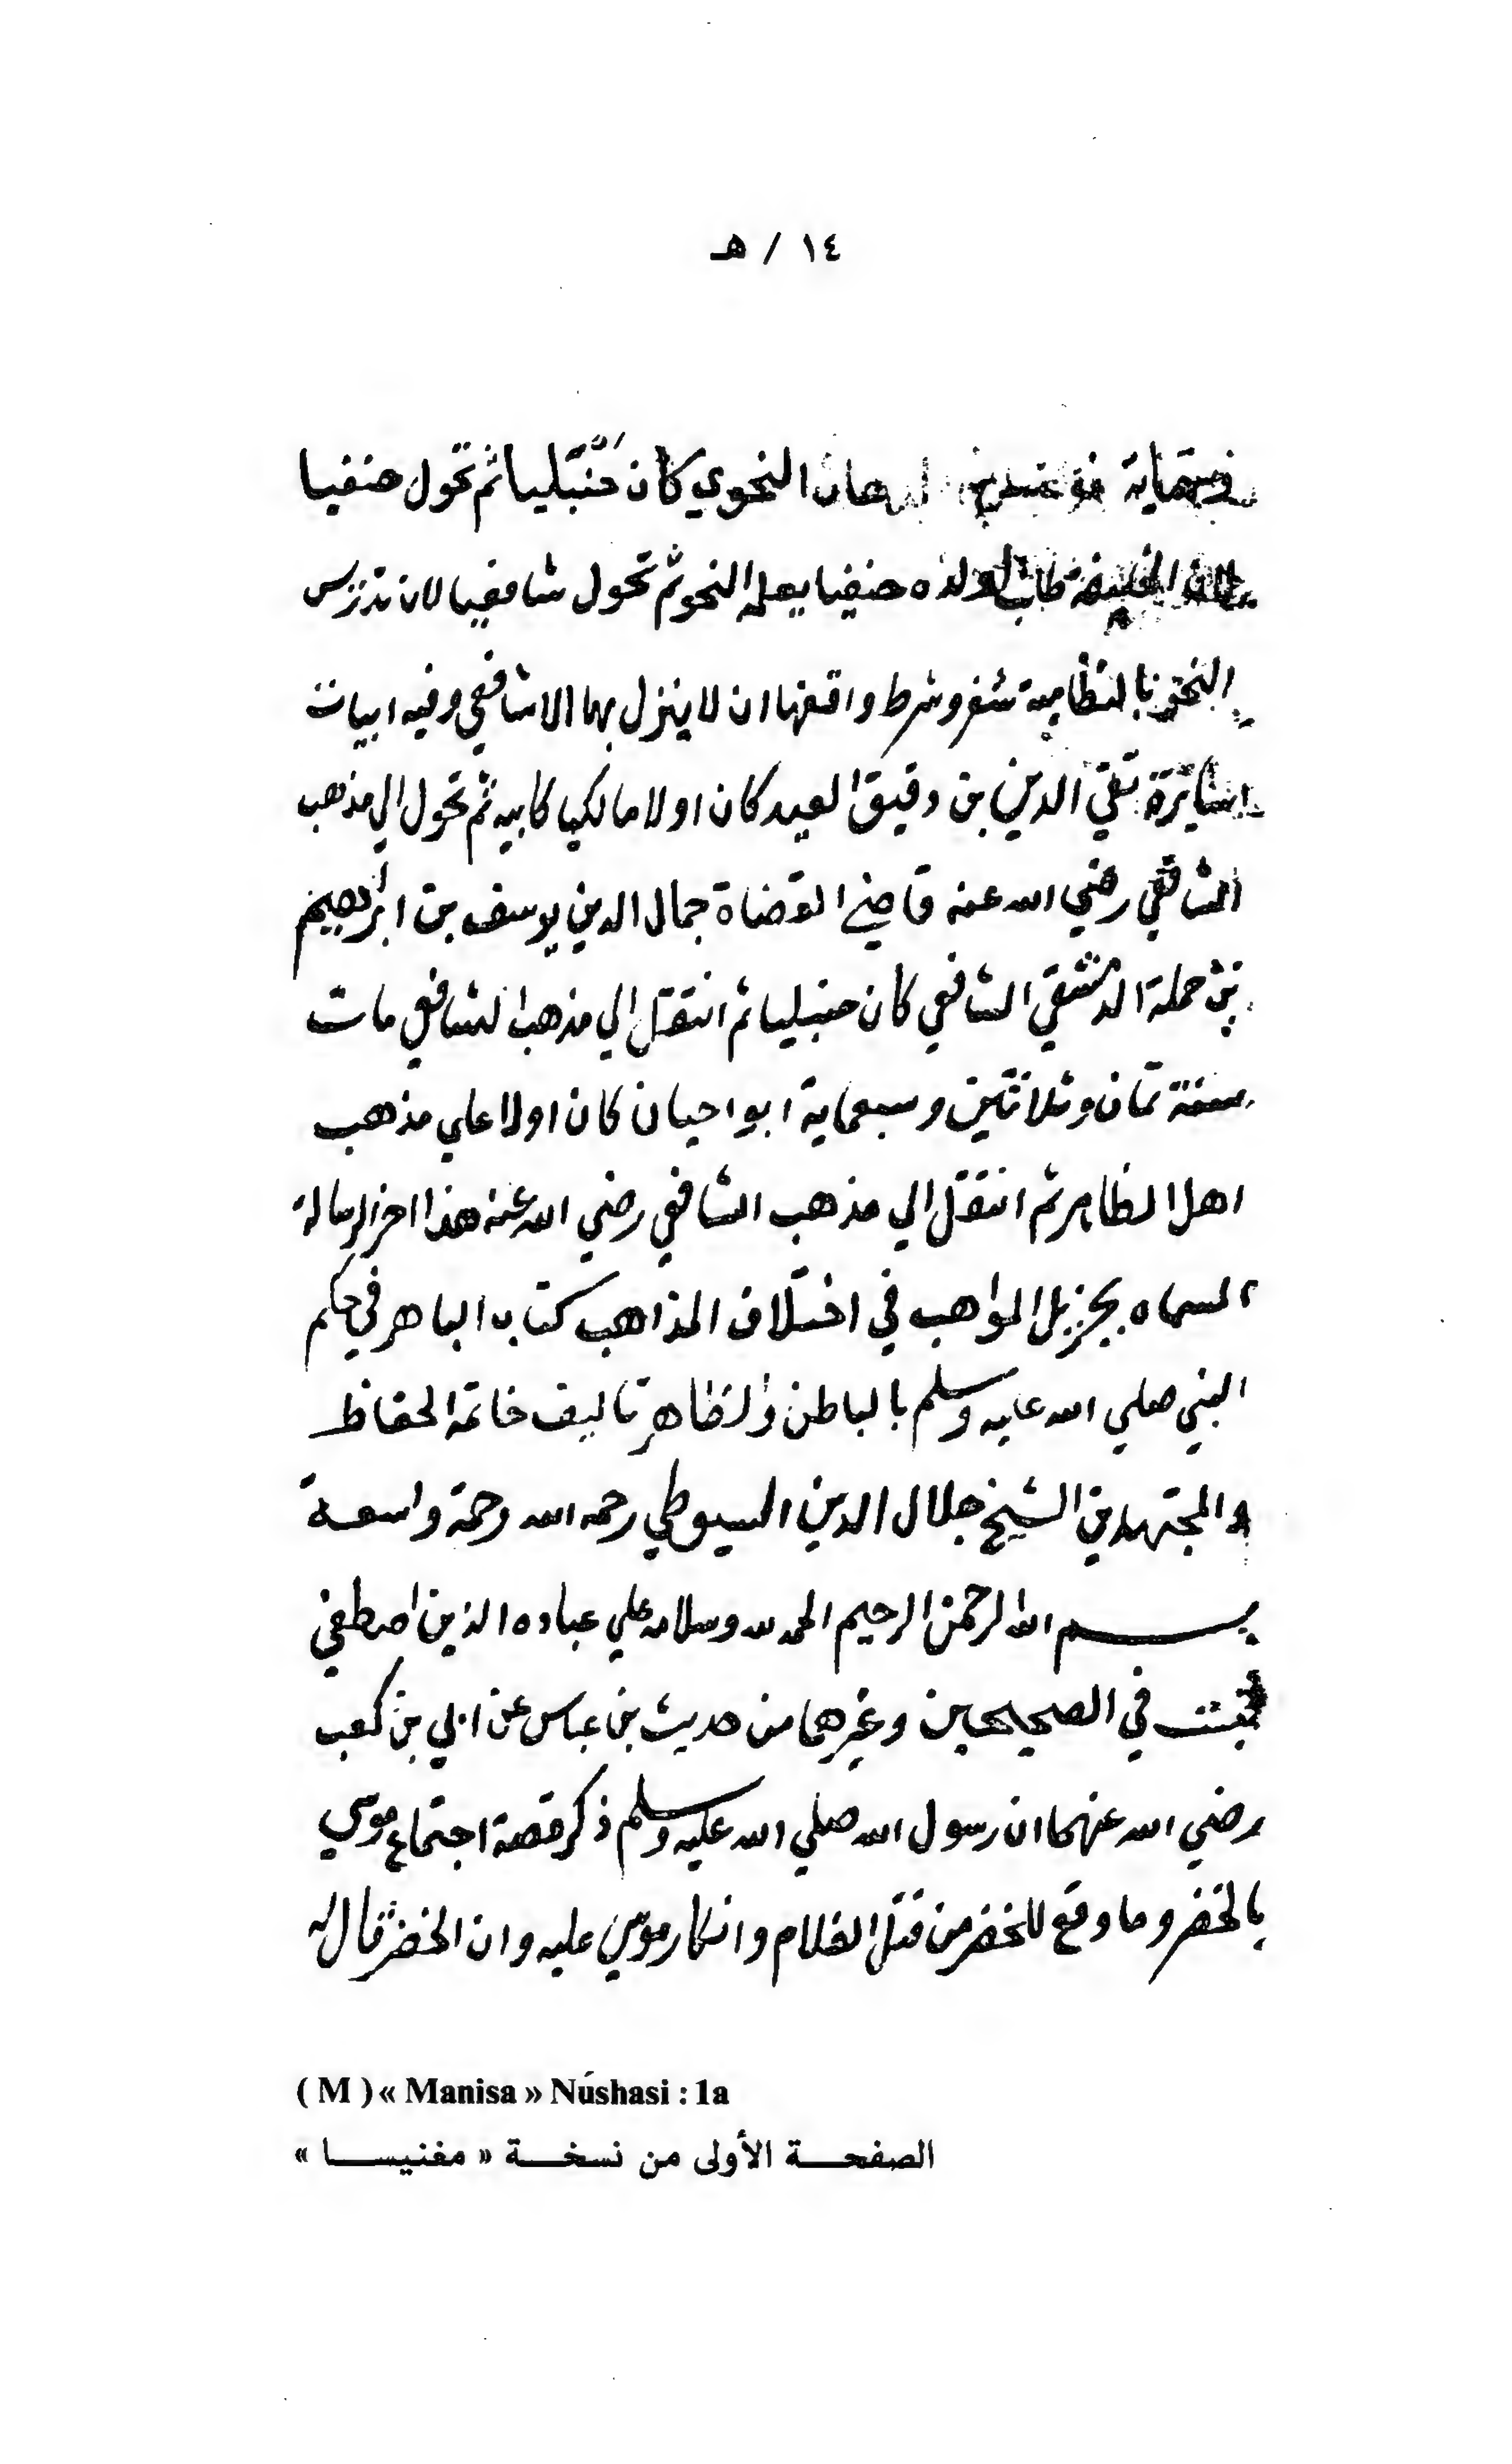 ١٤ / هـ
النحوي كان حنبليا ثم تحول حنفيا
الخليفة طلب لولده حنفيا يعلمه النحو ثم تحول شافعيا لان تدريس
النحو بالنظامية شغر وشرط واقفها ان لا ينزل بها الا شافعي وفيه ابيات
سائرة تقي الدين بن دقيق العيد كان اولا مالكيا كابيه ثم تحول الي مذهب
الشافعي رضي الله عنه قاضي القضاة جمال الدين يوسف بن ابرهيم
بن حملة الدمشقي الشافعي كان حنبليا ثم انتقل الي مذهب الشافعي مات
سنة ثمان وثلاثين وسبعماية ابوا حيان كان اولا علي مذهب
اهل الظاهر ثم انتقل الي مذهب الشافعي رضي الله عنه هذا اخر الرسالة
المسماه بجزيل المواهب في اختلاف المذاهب كتاب الباهر في حكم
النبي صلي الله عليه وسلم بالباطن والظاهر تاليف خاتمة الحفاظ
والمجتهدين الشيخ جلال الدين السيوطي رحمه الله رحمة واسعة
بسم الله الرحمن الرحيم الحمد لله وسلام علي عباده الذين اصطفي
ثبت في الصحيحين وغيرهما من حديث بن عباس عن ابي بن كعب
رضي الله عنهما ان رسول الله صلي الله عليه وسلم ذكر قصة اجتماع موسي
بالخضر وما وقع للخضر من قتل الغلام وانكار موسي عليه وان الخضر قال له
( M ) « Manisa » Núshasi : 1a
الصفحة الأولى من نسخة « مغنيسا »